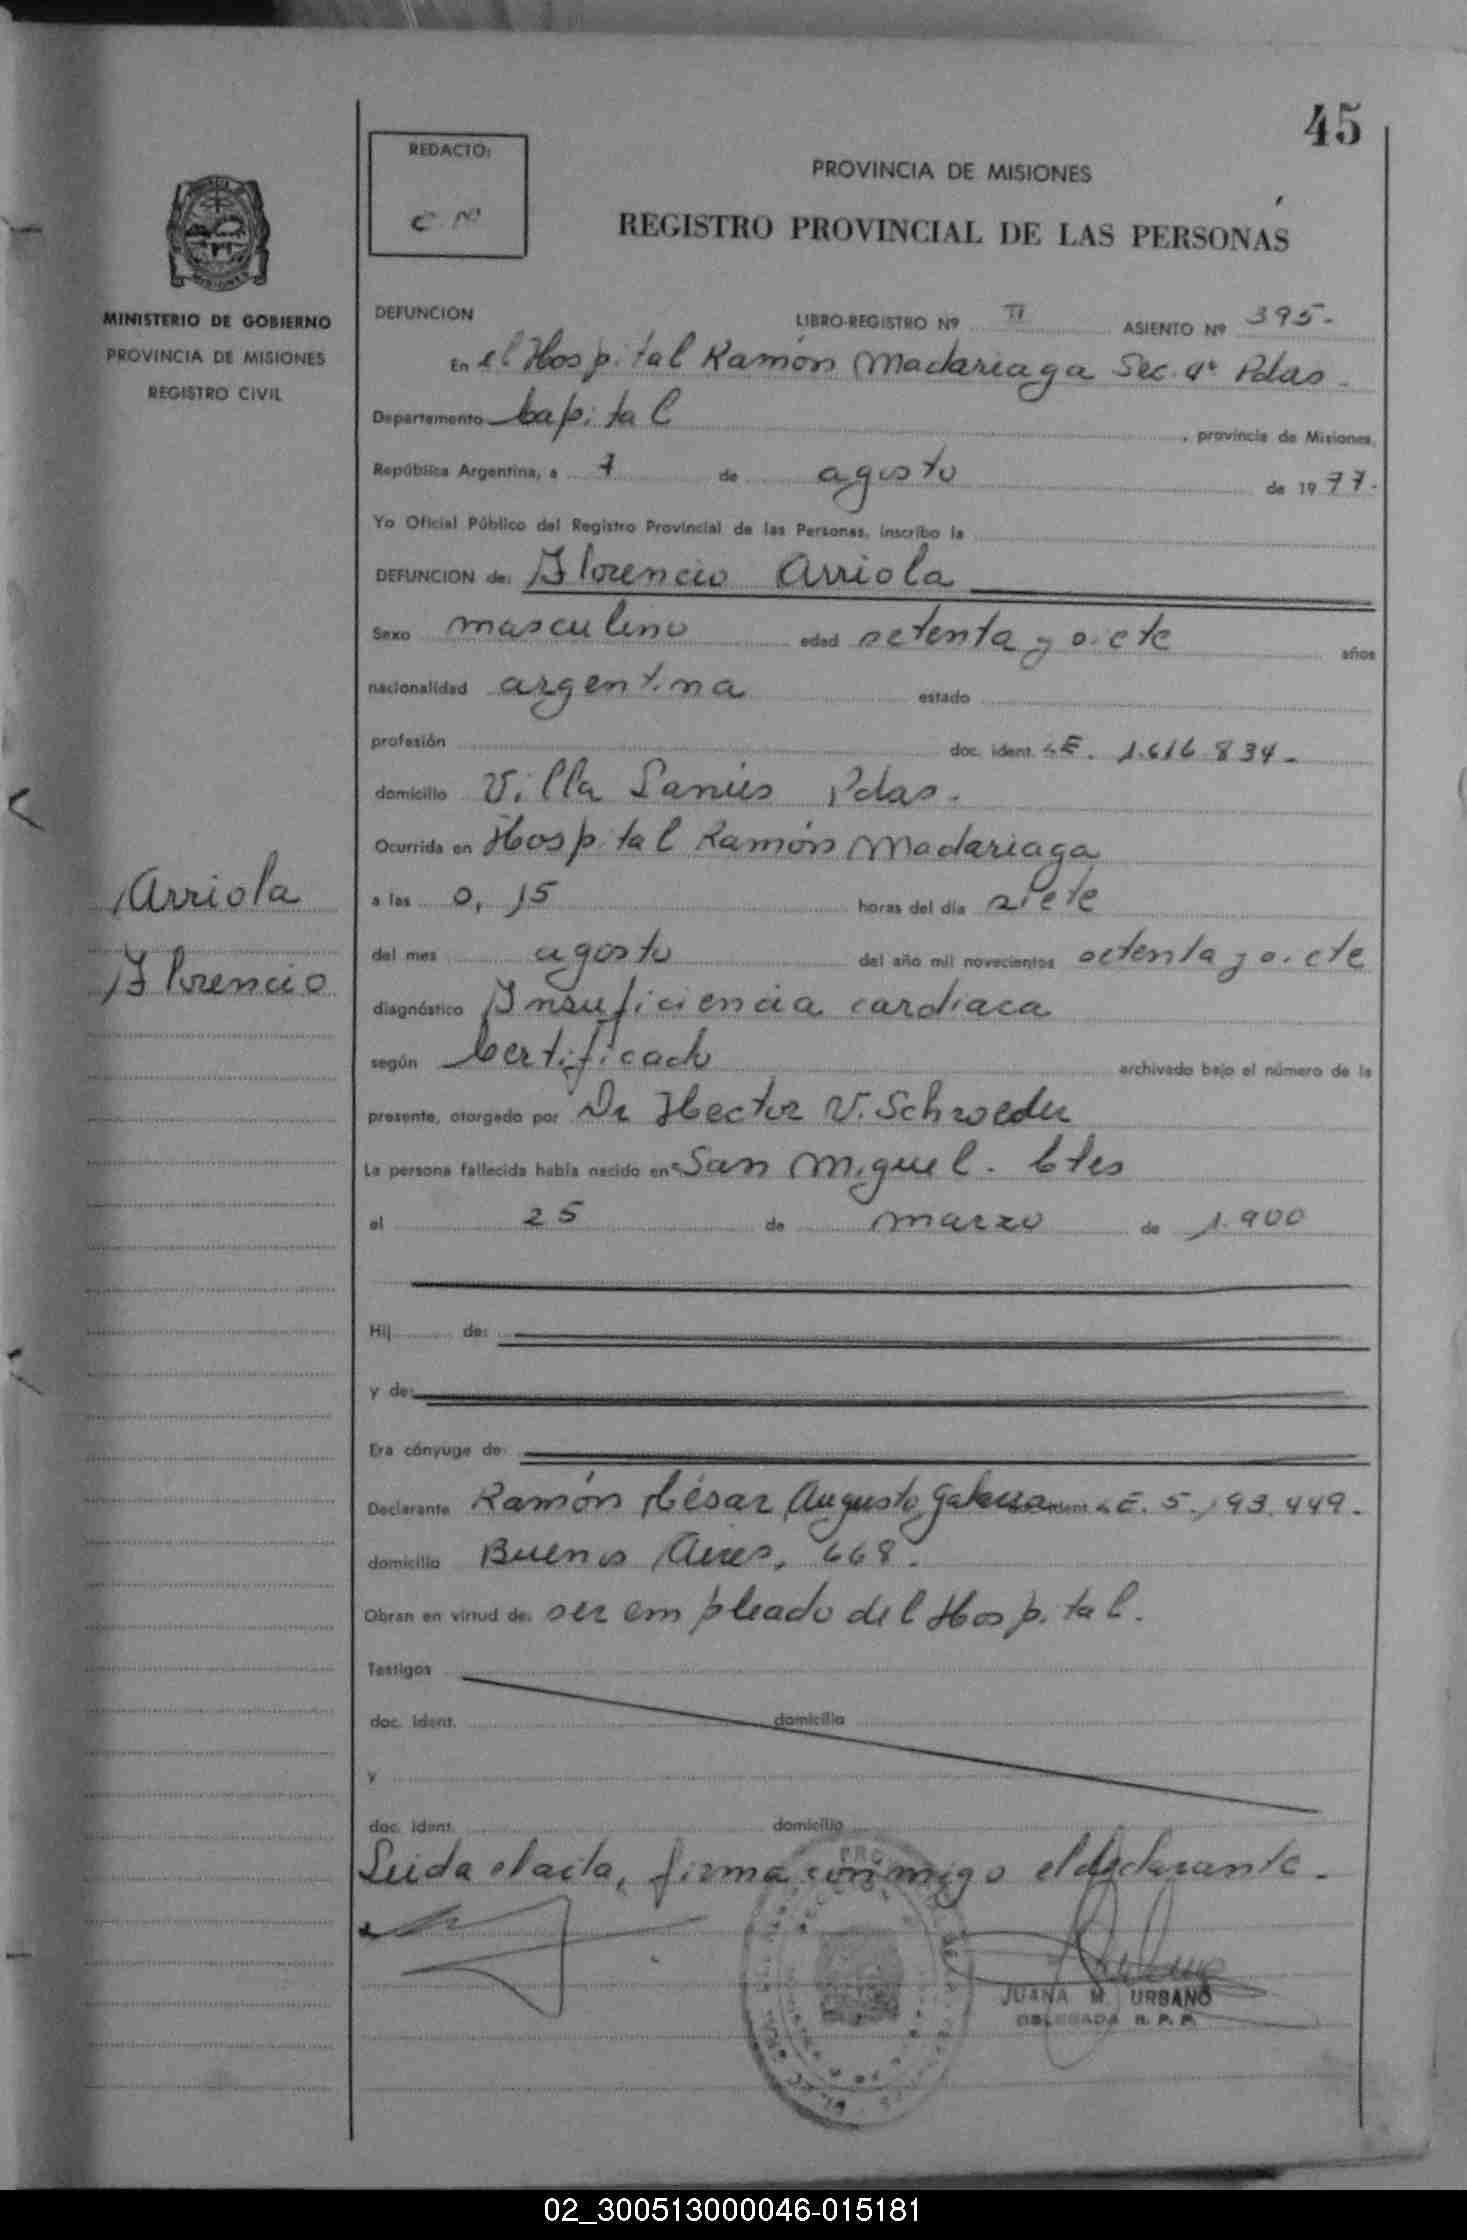 45
REDACTO:
PROVINCIA DE MISIONES
REGISTRO PROVINCIAL DE LAS PERSONAS
MINISTERIO DE GOBIERNO
PROVINCIA DE MISIONES
REGISTRO CIVIL
DEFUNCION LIBRO-REGISTRO Nº II ASIENTO Nº 395.-
En el Hospital Ramón Madariaga Sec. 4ª Pdas.
Departamento Capital, provincia de Misiones,
República Argentina, a 7 de agosto de 1977.-
Yo Oficial Público del Registro Provincial de las Personas, inscribo la
DEFUNCION de: Florencio Arriola
Sexo masculino edad setenta y siete años
nacionalidad argentina estado
profesión doc. ident. L.E. 1.616.834.-
domicilio Villa Lanús Pdas.
Ocurrida en Hospital Ramón Madariaga
a las 0,15 horas del día siete
del mes agosto del año mil novecientos setenta y siete
diagnóstico Insuficiencia cardiaca
según Certificado archivado bajo el número de la
presente, otorgado por Dr Hector V. Schroeder
La persona fallecida había nacido en San Miguel. Ctes
el 25 de marzo de 1.900
Hij de:
y de:
Era cónyuge de:
Declarante Ramón César Augusto ident. L.E. 5.193.449.
domicilio Buenos Aires, 668.
Obran en virtud de: ser empleado del Hospital.
Testigos
doc. ident. domicilio
y
doc. ident. domicilio
Leida el acta, firma conmigo el declarante.-
JUANA M. URBANO
DELEGADA R. P. P.
Arriola
Florencio
02_300513000046-015181